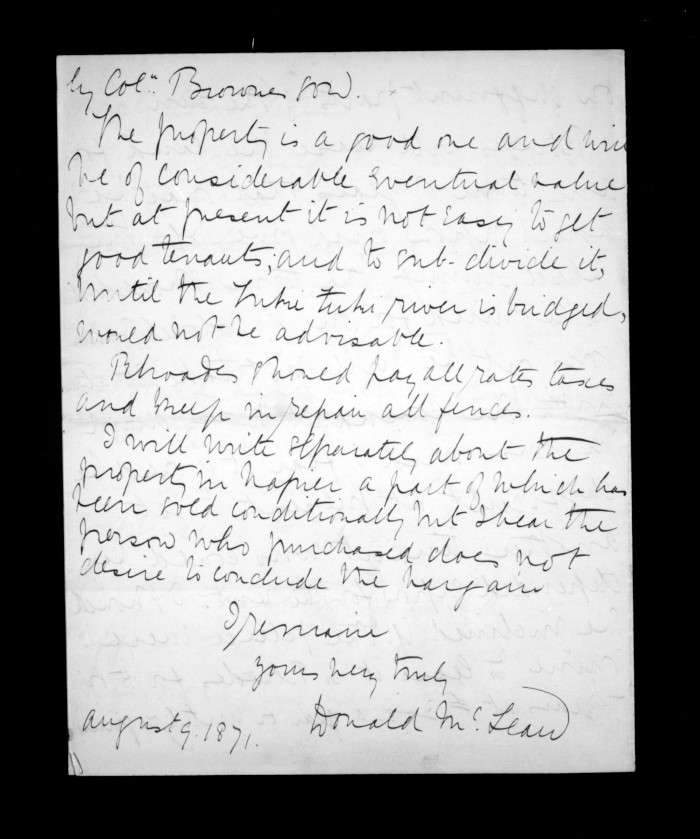 by Coln Brownes son.
The property is a good one and will
be of considerable eventual value
but at present it is not easy to get
good tenants; and to sub-divide it,
until the Tuki Tuki river is bridged,
would not be advisable.
Rhoades should pay all rates taxes
and keep in repair all fences.
I will write separately about the
property in Napier a part of which has
been sold conditionally but I hear the
person who purchased does not
desire to conclude the bargain
I remain
yours very truly
Donald McLean
August 9. 1871.